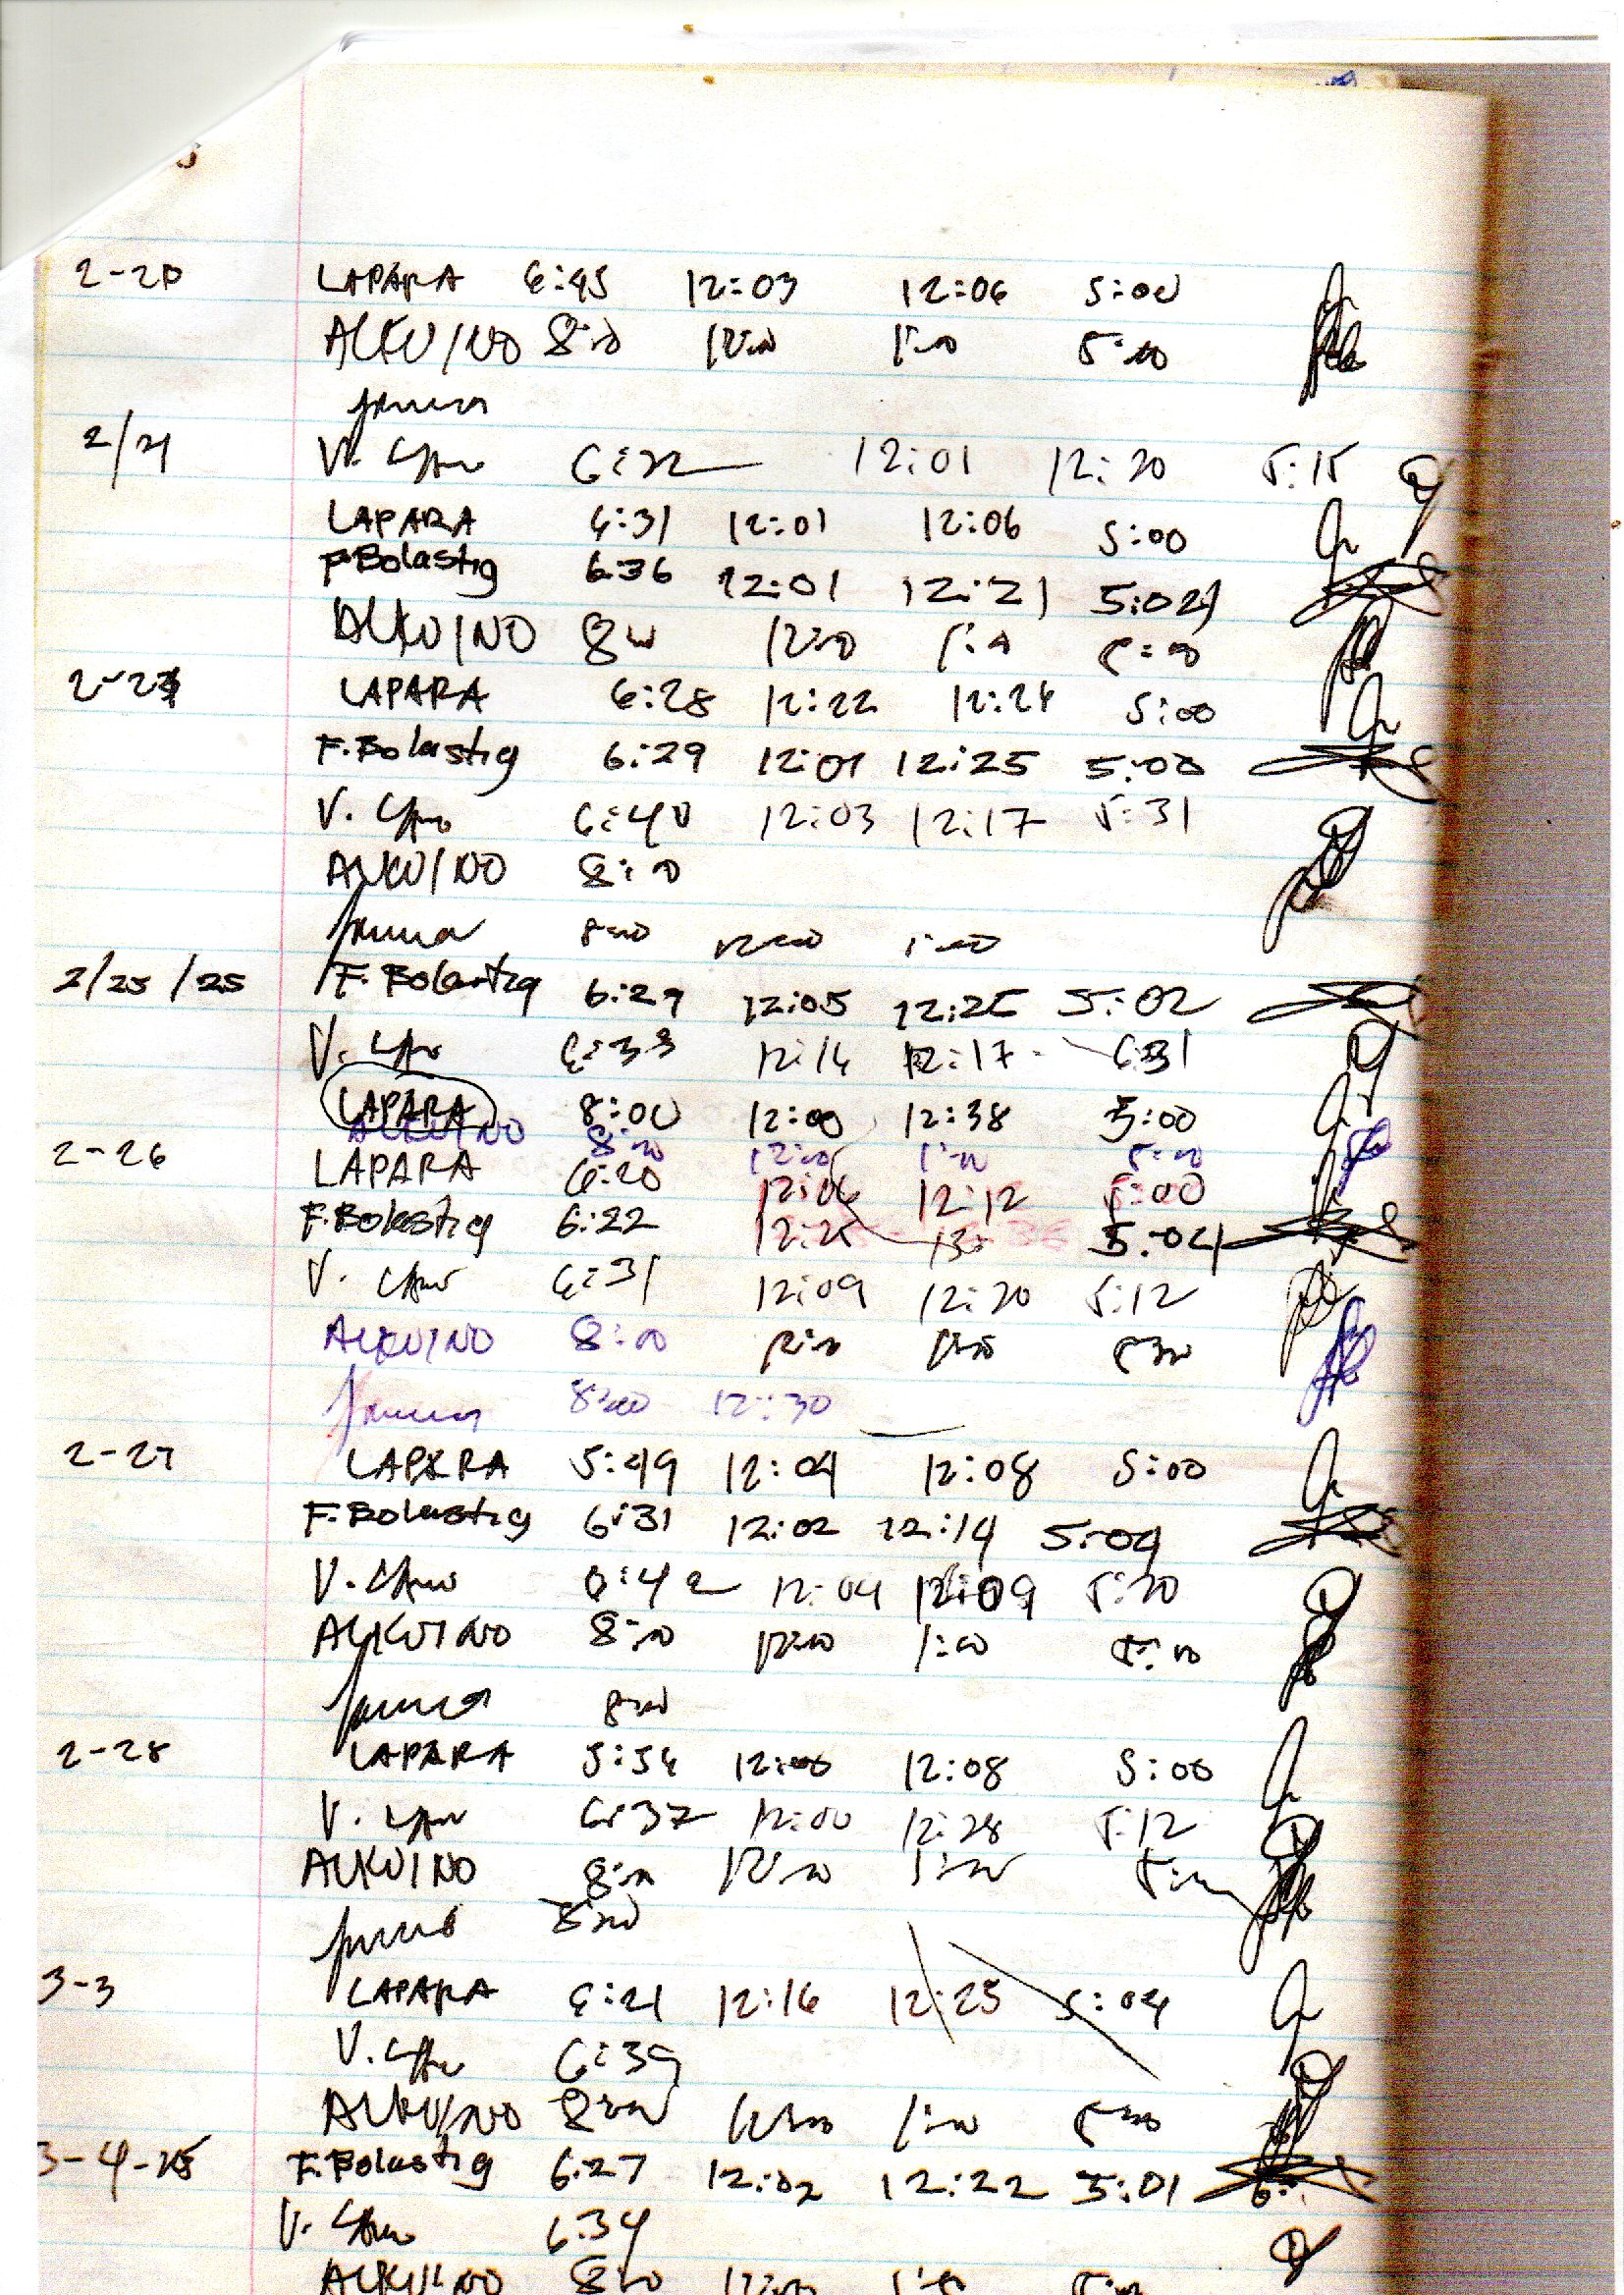 2-20 LAPARA 6:45 12:03 12:06 5:00
ALKUINO 8:00 12:00 1:00 5:00
2/21 V. 6:32 12:01 12:20 5:15
LAPARA 6:31 12:01 12:06 5:00
F Bolastig 6:36 12:01 12:21 5:04
ALKUINO 8:00 12:00 1:00 5:00
LAPARA 6:28 12:22 12:24 5:00
F. Bolastig 6:29 12:01 12:25 5:00
V. 6:40 12:03 12:17 5:31
ALKUINO 8:00
8:00 12:00 1:00
2/25/25 F. Bolastig 6:29 12:05 12:25 5:02
V. 6:33 12:14 12:17 5:31
LAPARA 8:00 12:00 12:38 5:00
ALKUINO 8:00 12:00 1:00 5:00
2-26 LAPARA 6:20 12:06 12:12 5:00
F. Bolastig 6:22 12:25 5:04
V. 6:31 12:09 12:20 5:12
ALKUINO 8:00 12:00 1:00 5:00
8:00 12:30
2-27 LAPARA 5:49 12:04 12:08 5:00
F. Bolastig 6:31 12:02 12:14 5:04
V. 6:42 12:04 12:09 5:20
ALKUINO 8:00 12:00 1:00 5:00
8:00
2-28 LAPARA 5:54 12:00 12:08 5:00
V. 6:37 12:00 12:28 5:12
ALKUINO 8:00 12:00 1:00 5:00
8:00
3-3 LAPARA 6:21 12:16 12:25 5:04
V. 6:39
ALKUINO 8:00 12:00 1:00 5:00
3-4-25 F. Bolastig 6:27 12:02 12:22 5:01
V. 6:34
ALKUINO 8:00 12:00 1:00 5:00